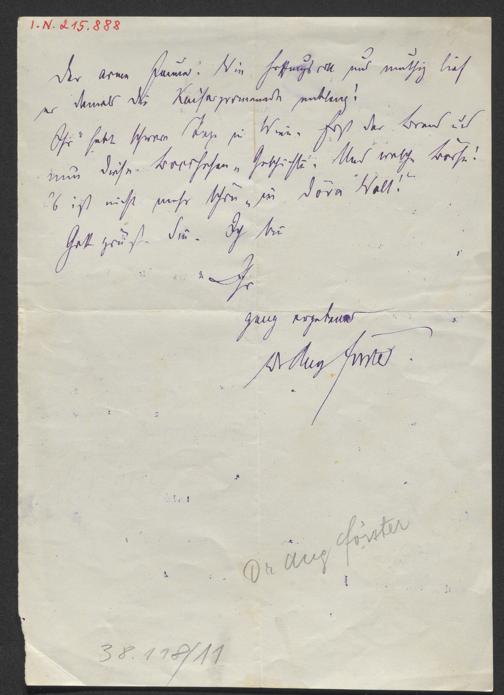 I. N. 215.888
Der arme Kaiser! Wie hoffnungsvoll und muthig lief
er damals die Kaiserpromenade entlang!
Ihr habt schwere Tage in Wien. Erst der Brand und
nun diese Geschichte. Und welche
's ist nicht mehr schön in dera Welt!"
Gott grüß Sie. Ich bin
Ihr
ganz ergebener
Dr Aug Förster.
Dr Aug Förster
38.118/11